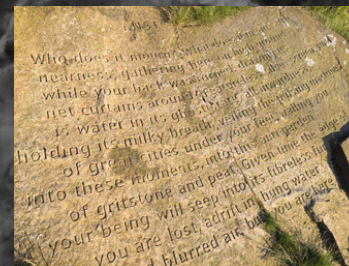 MIST
Who does it mourn? What does it mean, such
nearness, gathering here on high ground
while your back was turned, drawing its
net curtains around? Featureless silver screen, mist
is water in its ghost state, all inwardness,
holding its milky breath, veiling the pulsing machines
of great cities under your feet, walling you
into these moments, into this anti-garden
of gritstone and peat. Given time the edge of
your being will seep into its fibreless fur;
you are lost, adrift in hung water
and blurred air, but you are here.